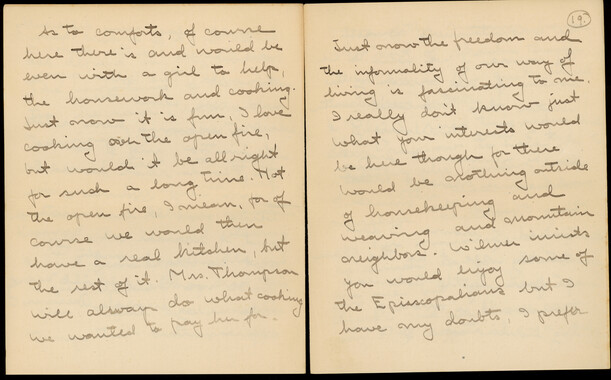 As to comforts, of course
here there is and would be
even with a girl to help,
the housework and cooking.
Just now it is fun, I love
cooking over the open fire,
but would it be all right
for such a long time. Not
the open fire, I mean, for of
course we would then
have a real kitchen, but
the rest of it. Mrs. Thompson
will always do what cooking
we wanted to pay her for.
19.
Just now the freedom and
the informality of our way of
living is fascinating to me.
I really don't know just
what your interests would
be here though for there
would be nothing outside
of housekeeping and
weaving and mountain
neighbors. Wilmer insists
you would enjoy some of
the Episcopalians but I
have my doubts, I prefer